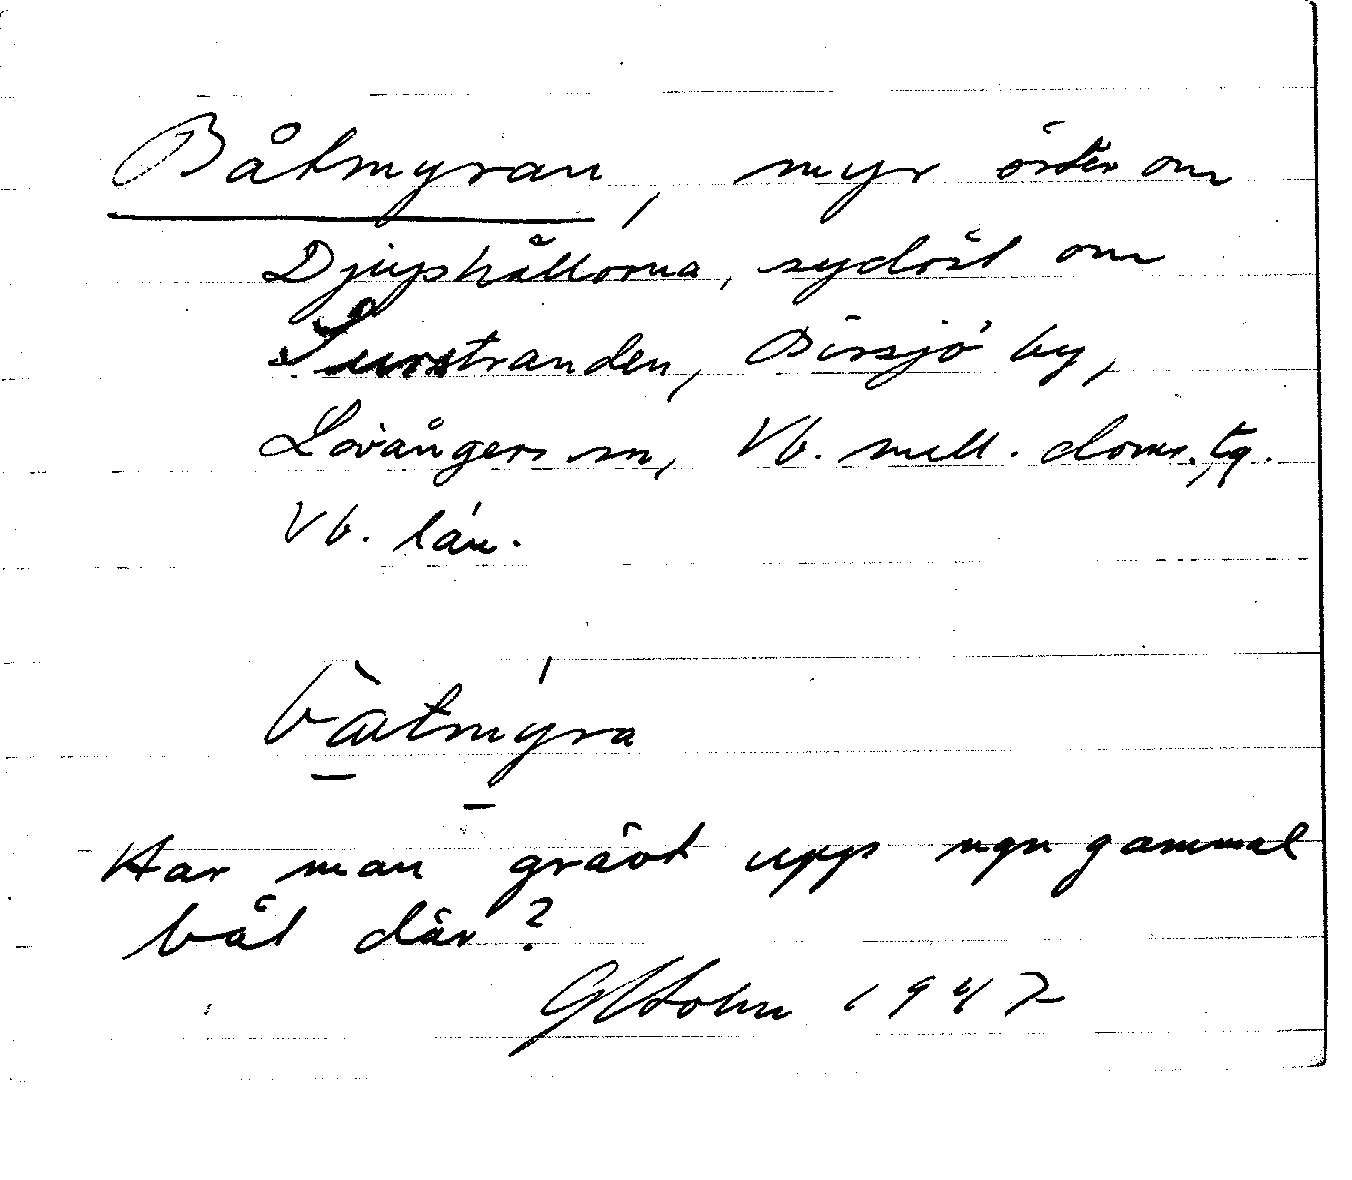 Båtmyran, myr öster om
Djuphällorna, sydöst om
Surstranden, Bissjö by,
Lövångers sn, Vb. mell. doms. tg.
Vb. län.
bàtmýra
Har man grävt upp ngn gammal
båt där?
1947